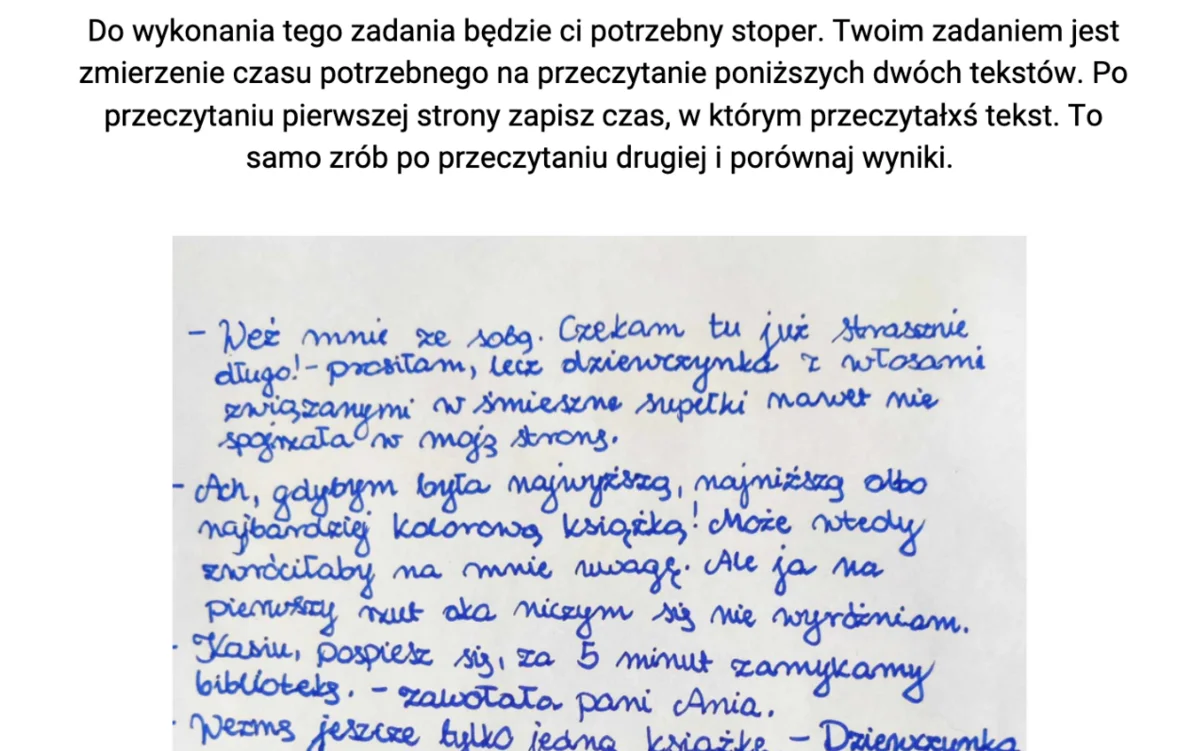 Do wykonania tego zadania będzie ci potrzebny stoper. Twoim zadaniem jest
zmierzenie czasu potrzebnego na przeczytanie poniższych dwóch tekstów. Po
przeczytaniu pierwszej strony zapisz czas, w którym przeczytałxś tekst. To
samo zrób po przeczytaniu drugiej i porównaj wyniki.
- Weź mnie ze sobą. Czekam tu już strasznie
długo! - prosiłam, lecz dziewczynka z włosami
związanymi w śmieszne supełki nawet nie
spojrzała w moją stronę.
- Ach, gdybym była najwyższą, najniższą albo
najbardziej kolorową książką! Może wtedy
zwróciłaby na mnie uwagę. Ale ja na
pierwszy rzut oka niczym się nie wyróżniam.
- Kasiu, pospiesz się, za 5 minut zamykamy
bibliotekę. - zawołała pani Ania.
- Wezmę jeszcze tylko jedną książkę - Dziewczynka